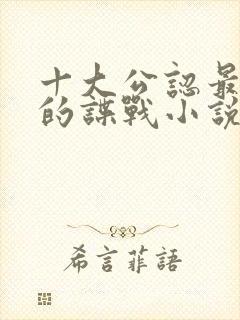 十大公認最
的諜戰小說
希言菲語